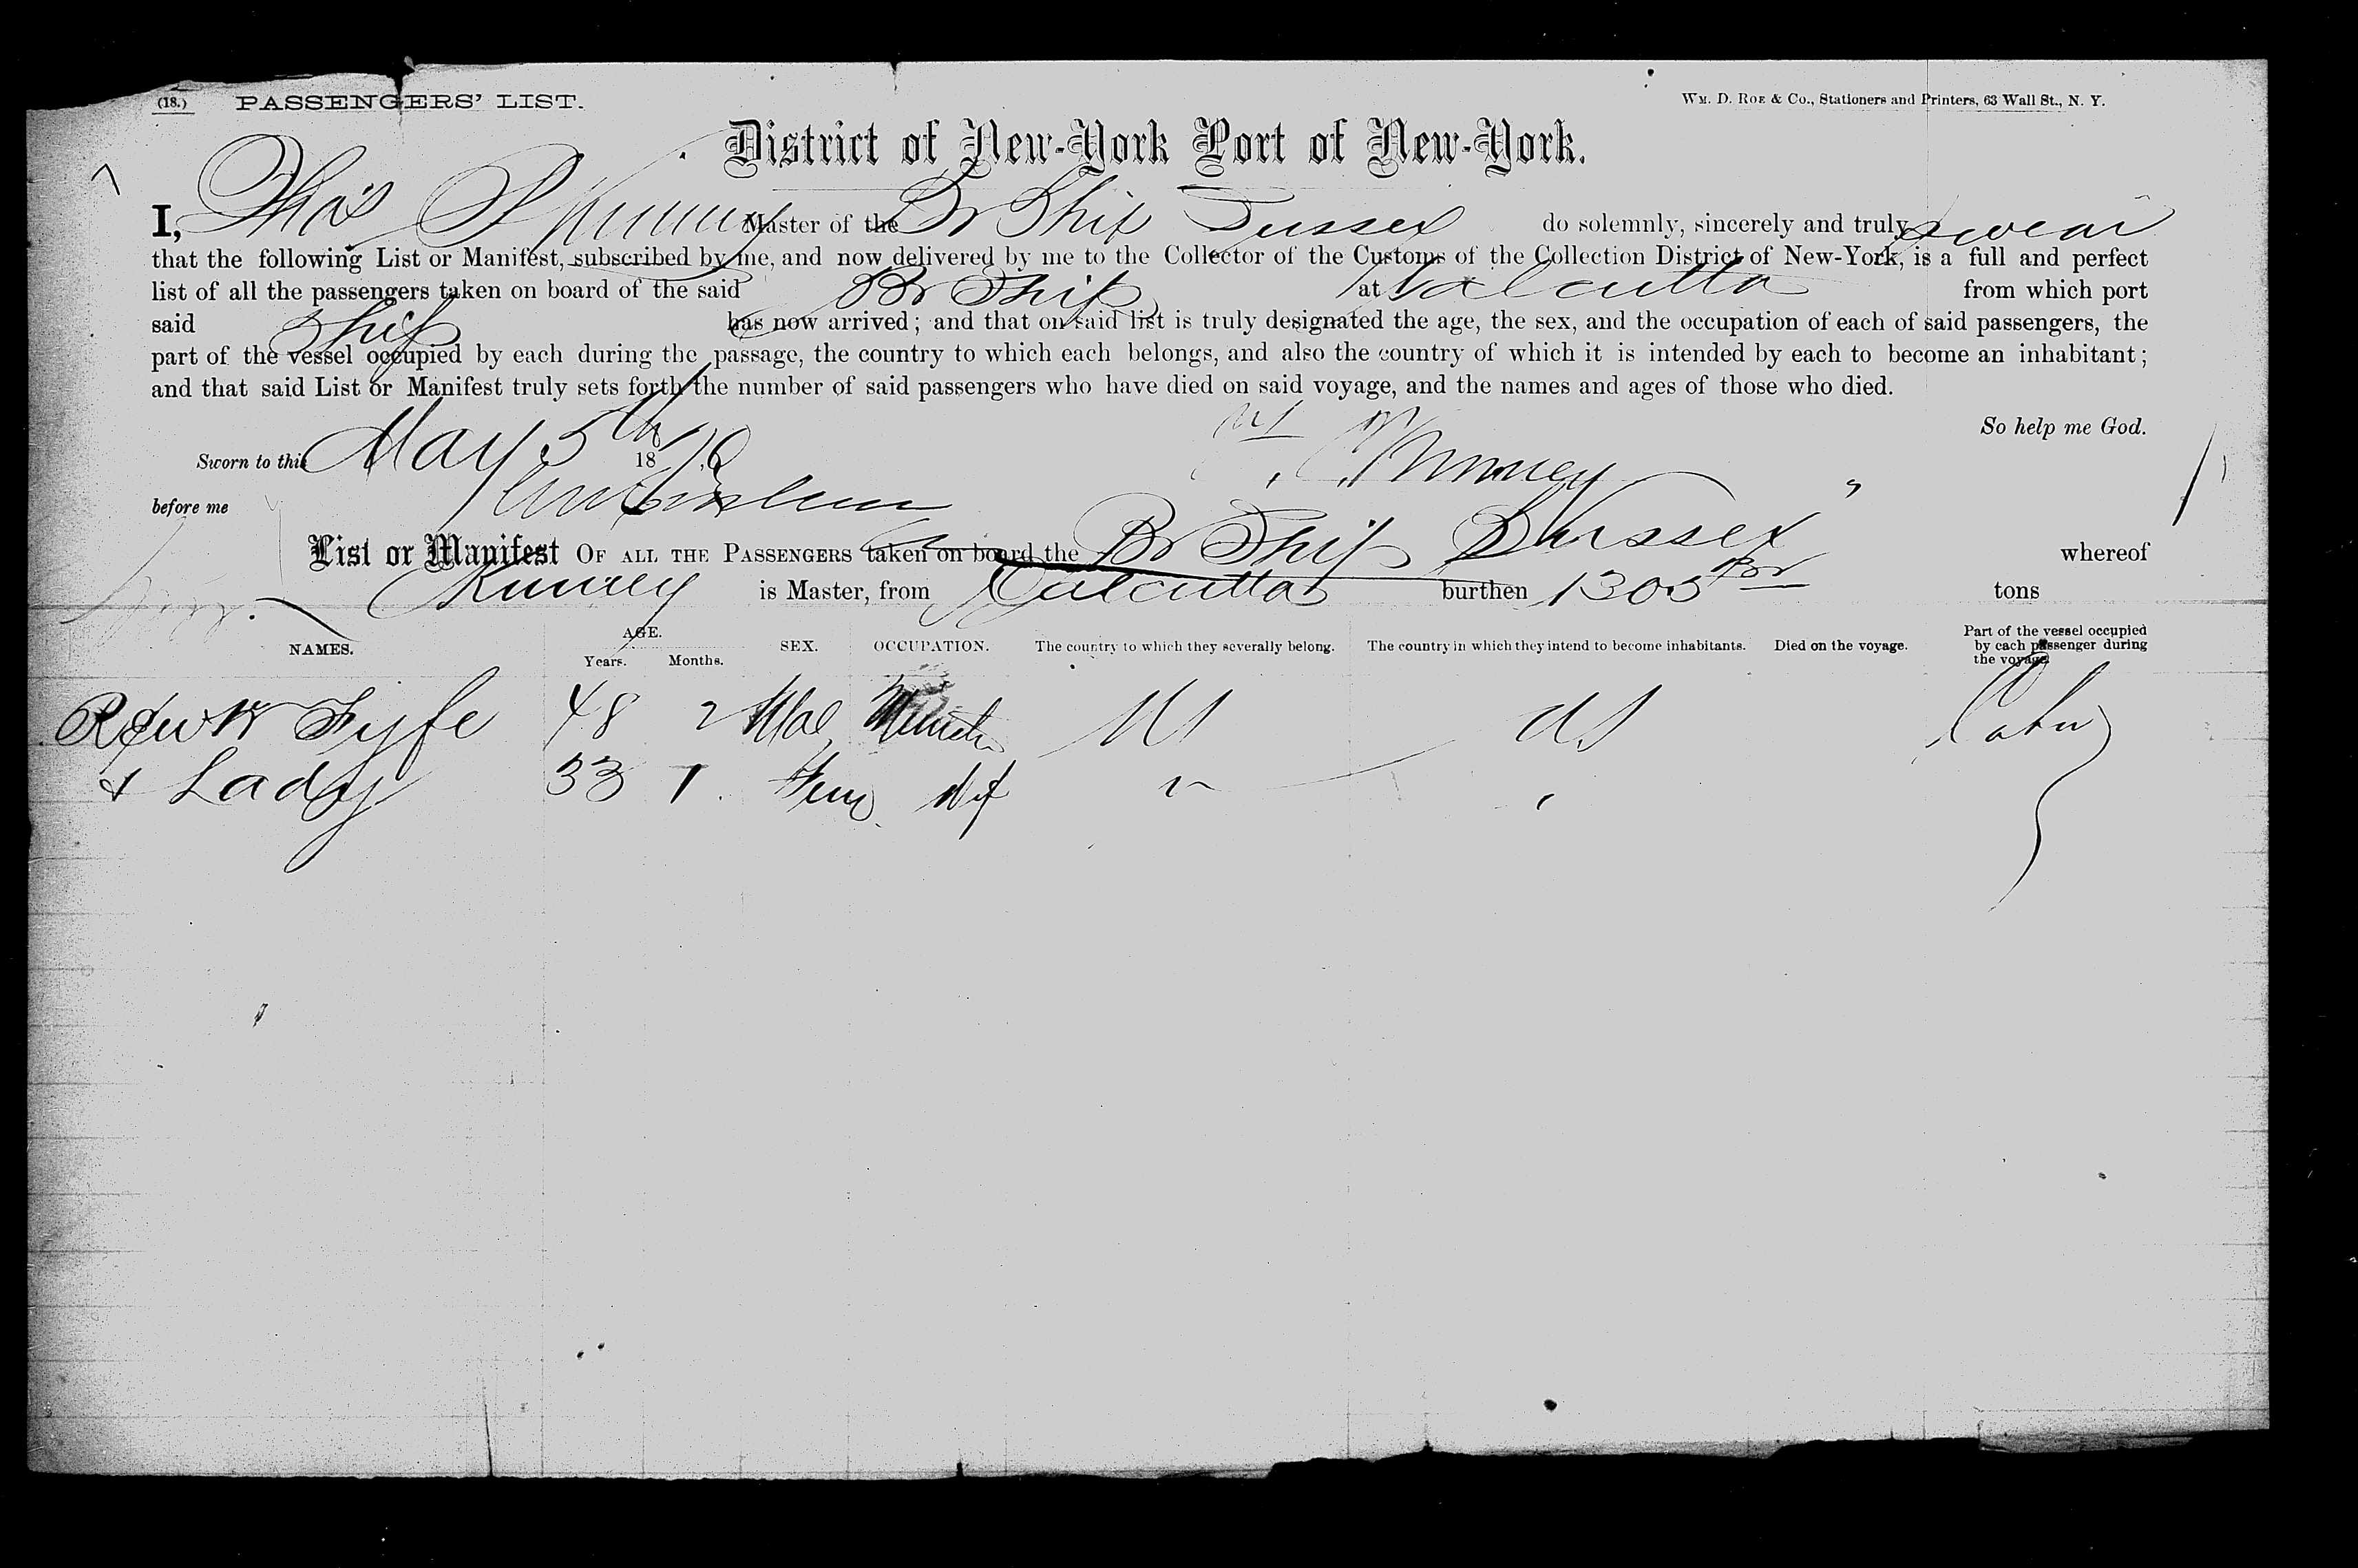 (18.) PASSENGERS' LIST. WM. D. ROE & Co., Stationers and Printers, 63 Wall St., N. Y.
District of New-York Port of New-York.
I, Thos Master of the Br Ship Sussex do solemnly, sincerely and truly swear
that the following List or Manifest, subscribed by me, and now delivered by me to the Collector of the Customs of the Collection District of New-York, is a full and perfect
list of all the passengers taken on board of the said Br Ship at Calcutta from which port
said Ship has now arrived; and that on said list is truly designated the age, the sex, and the occupation of each of said passengers, the
part of the vessel occupied by each during the passage, the country to which each belongs, and also the country of which it is intended by each to become an inhabitant;
and that said List or Manifest truly sets forth the number of said passengers who have died on said voyage, and the names and ages of those who died.
So help me God.
Sworn to this May 5th 18
before me
List or Manifest OF ALL THE PASSENGERS taken on board the Br Ship Sussex whereof
is Master, from Calcutta burthen 1305 tons
NAMES. AGE. Years. Months. SEX. OCCUPATION. The country to which they severally belong. The country in which they intend to become inhabitants. Died on the voyage. Part of the vessel occupied by each passenger during the voyage.
Fyfe 48 2 Mal US US Cabin
& Lady 33 1 Fem